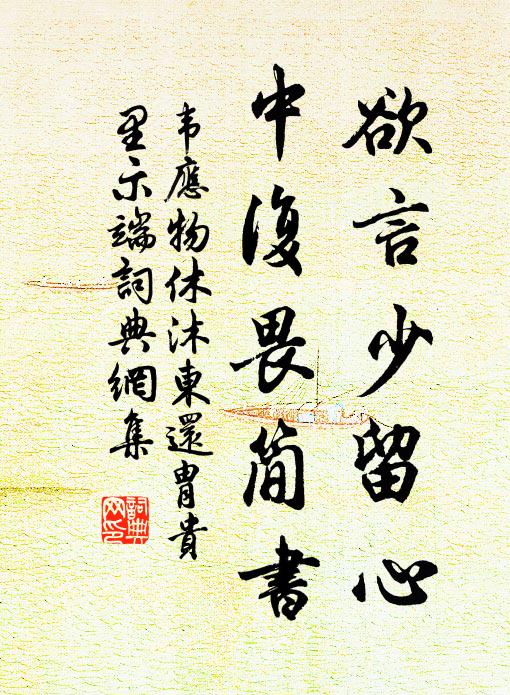 欲言少留心
中復畏简書
韦應物休沐東還胄貴
里示端詞典網集
詞典
网印